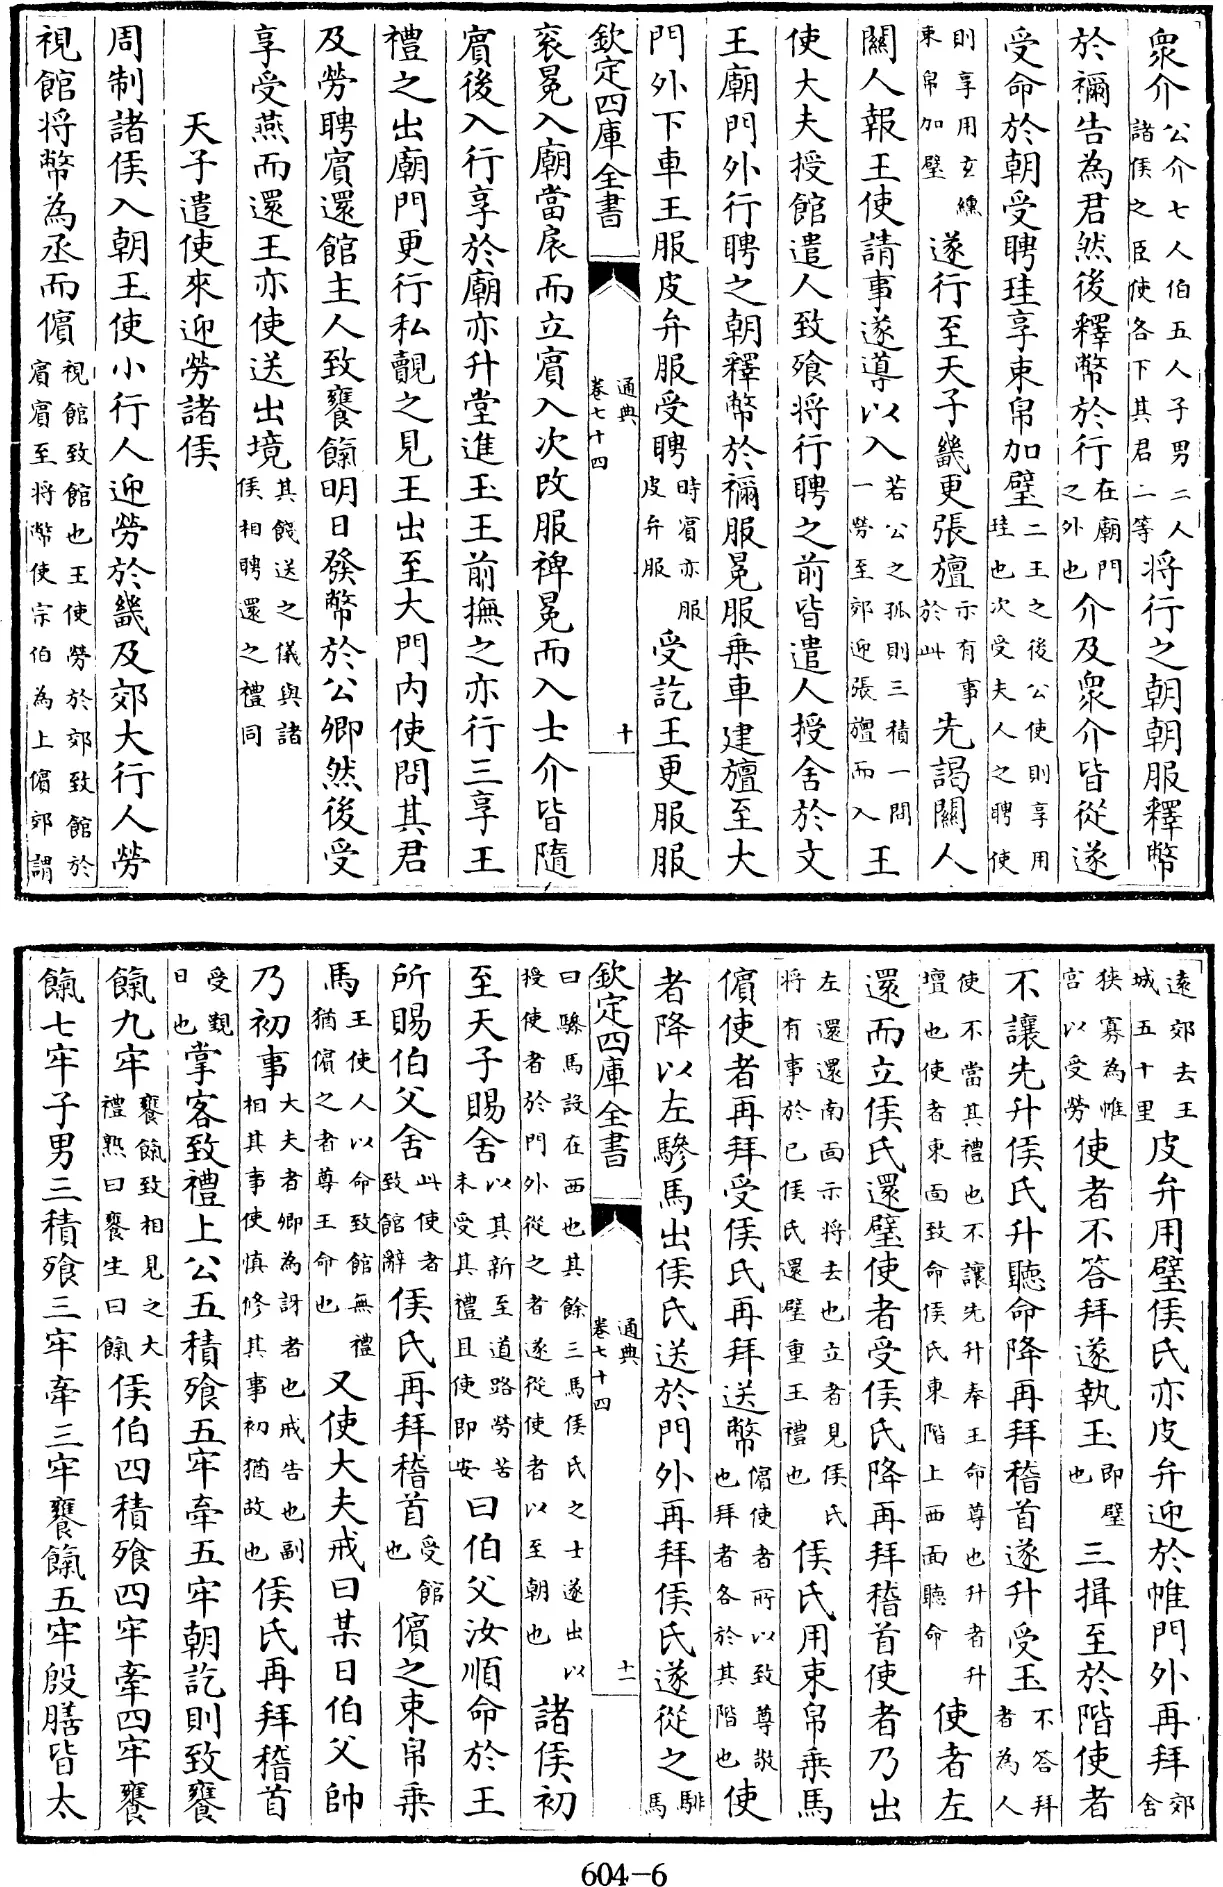 衆介公介七人伯五人子男二人諸侯之臣使各下其君二等將行之朝朝服釋幣
於禰告為君然後釋幣於行在廟門之外也介及衆介皆從遂
受命於朝受聘珪享束帛加璧二王之後公使則享用珪也次受夫人之聘使
則享用玄纁束帛加璧遂行至天子畿更張旜示有事於此先謁關人
關人報王使請事遂導以入若公之孤則三積一問一勞至郊迎張旜而入王
使大夫授館遣人致飧将行聘之前皆遣人授舍於文
王廟門外行聘之朝釋幣於禰服冕服乗車建旜至大
門外下車王服皮弁服受聘時賓亦服皮弁服受訖王更服服
欽定四庫全書 通典卷七十四 十
衮冕入廟當扆而立賓入次改服裨冕而入士介皆隨
賓後入行享於廟亦升堂進玉王前撫之亦行三享王
禮之出廟門更行私覿之見王出至大門内使問其君
及勞聘賓還館主人致饔餼明日發幣於公卿然後受
享受燕而還王亦使送出境其餞送之儀與諸侯相聘還之禮同
天子遣使來迎勞諸侯
周制諸侯入朝王使小行人迎勞於畿及郊大行人勞
視館将幣為丞而儐視館致館也王使勞於郊致館於賓賓至将幣使宗伯為上儐郊謂
遠郊去王城五十里皮弁用璧侯氏亦皮弁迎於帷門外再拜郊舍
狹寡為帷宫以受勞使者不答拜遂執玉即璧也三揖至於階使者
不讓先升侯氏升聽命降再拜稽首遂升受玉不答拜者為人
使不當其禮也不讓先升奉王命尊也升者升壇也使者東面致命侯氏東階上西面聽命使者左
還而立侯氏還璧使者受侯氏降再拜稽首使者乃出
左還還南面示将去也立者見侯氏将有事於已侯氏還璧重王禮也侯氏用束帛乗馬
儐使者再拜受侯氏再拜送幣儐使者所以致尊敬也拜者各於其階也使
者降以左驂馬出侯氏送於門外再拜侯氏遂從之騑馬
欽定四庫全書 通典卷七十四 十一
曰驂馬設在西也其餘三馬侯氏之士遂出以授使者於門外從之者遂從使者以至朝也諸侯初
至天子賜舍以其新至道路勞苦未受其禮且使即安曰伯父汝順命於王
所賜伯父舍此使者致館辭侯氏再拜稽首受館也儐之束帛乗
馬王使人以命致館無禮猶儐之者尊王命也又使大夫戒曰某日伯父帥
乃初事大夫者卿為訝者也戒告也副相其事使慎修其事初猶故也侯氏再拜稽首
受覲日也掌客致禮上公五積飱五牢牽五牢朝訖則致饔
餼九牢饔餼致相見之大禮熟曰饔生曰餼侯伯四積飱四牢牽四牢饔
餼七牢子男三積飱三牢牽三牢饔餼五牢殷膳皆太
604-6